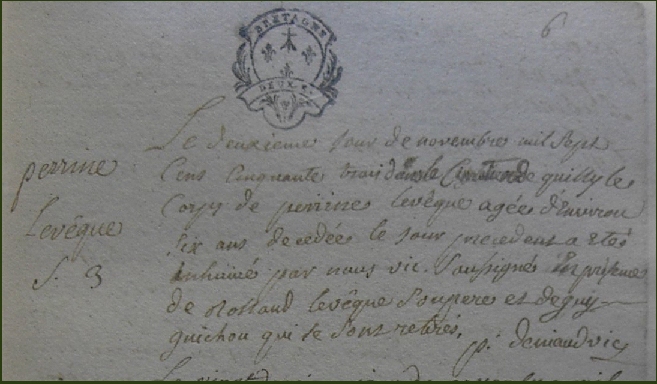 6
BRETAGNE
DEUX S.
perrine
Levêque
S. 3
Le deuxieme jour de novembre mil sept
Cens Cinquante trois dans le Cimetiere de quilly le
Corps de perrines Levêque agée d'Environ
six ans decedées le jour precedent a etés
inhumé par nous vic. Soussignés En presence
de Rolland Levêque Son pere et de guy
guichou qui se sont retirés.
p. deniaud vic